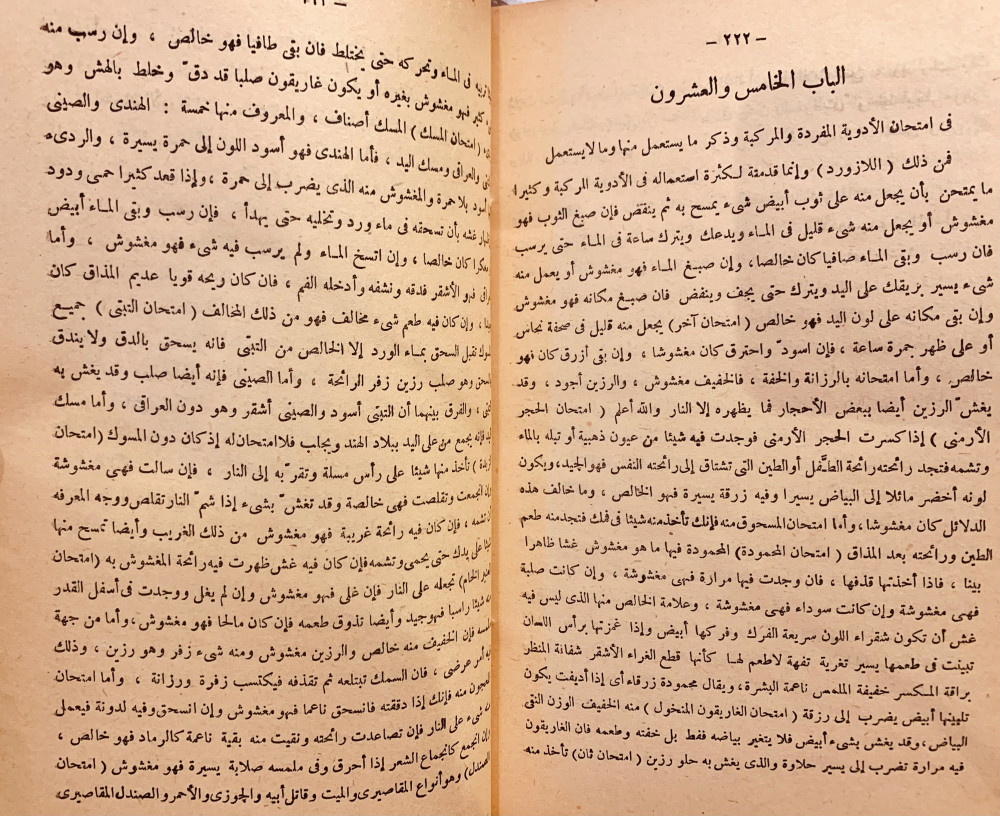 — ٢٢٢ —
الباب الخامس والعشرون
فى امتحان الأدوية المفردة والمركبة وذكر ما يستعمل منها وما لا يستعمل
فمن ذلك ( اللازورد ) وإنما قدمتة لكثرة استعماله فى الأدوية المركبة وكثيرا
ما يمتحن بأن يجعل منه على ثوب أبيض شىء يمسح به ثم ينفض فإن صبغ الثوب فهو
مغشوش أو يجعل منه شىء قليل فى الماء ويدعك ويترك ساعة فى الماء حتى يرسب
فان رسب وبقى الماء صافيا كان خالصا، وإن صبغ الماء فهو مغشوش أو يعمل منه
شىء يسير بريقك على اليد ويترك حتى يجف وينفض فان صبغ مكانه فهو مغشوش
وإن بقى مكانه على لون اليد فهو خالص ( امتحان آخر) يجعل منه قليل فى صحفة نحاس
أو على ظهر جمرة ساعة ، فإن اسودّ واحترق كان مغشوشا ، وإن بقى أزرق كان فهو
خالص ، وأما امتحانه بالرزانة والخفة ، فالخفيف مغشوش ، والرزين أجود ، وقد
يغشّ الرزين أيضا ببعض الأحجار فما يظهره إلا النار والله أعلم ( امتحان الحجر
الأرمنى ) إذا كسرت الحجر الأرمنى فوجدت فيه شيئا من عيون ذهبية أو تبله بالماء
وتشمه فتجد رائحته رائحة الطَّفل أو الطين التى تشتاق إلى رائحته النفس فهو الجيد، ويكون
لونه أخضر مائلا إلى البياض يسيرا وفيه زرقة يسيرة فهو الخالص ، وما خالف هذه
الدلائل كان مغشوشا، وأما امتحان المسحوق منه فإنك تأخذ منه شيئا فى فمك فتجد منه طعم
الطين ورائحته بعد المذاق ( امتحان المحمودة) المحمودة فيها ما هو مغشوش غشا ظاهرا
بينا ، فاذا أخذتها قذفها ، فان وجدت فيها مرارة فهى مغشوشة ، وإن كانت صلبة
فهى مغشوشة وإن كانت سوداء فهى مغشوشة ، وعلامة الخالص منها الذى ليس فيه
غش أن تكون شقراء اللون سريعة الفرك وفركها أبيض وإذا غمزتها برأس اللسان
تبينت فى طعمها يسير تغرية تفهة لاطعم لها كأنها قطع الغراء الأشقر شفانة المنظر
براقة المكسر خفيفة الملمس ناعمة البشرة، ويقال محمودة زرقاء أى إذا أديفت يكون
تلبينها أبيض يضرب إلى رزقة ( امتحان الغاريقون المنخول ) منه الخفيف الوزن النقى
البياض، وقد يغش بشىء أبيض فلا يتغير بياضه فقط بل خفته وطعمه فان الغاريقون
فيه مرارة تضرب إلى يسير حلاوة والذى يغش به حلو رزين ( امتحان ثان ) تأخذ منه
فى الماء وتحركه حتى يختلط فان بقى طافيا فهو خالص ، وإن رسب منه
كثير فهو مغشوش بغيره أو يكون غاريقون صلبا قد دقّ وخلط بالهش وهو
( امتحان المسك ) المسك أصناف ، والمعروف منها خمسة : الهندى والصينى
والعراقى ومسك اليد ، فأما الهندى فهو أسود اللون إلى حمرة يسيرة ، والردىء
أسود بلا حمرة والمغشوش منه الذى يضرب إلى حمرة ، وإذا قعد كثيرا حمى ودود
غشه بأن تسحقه فى ماء ورد وتخليه حتى يهدأ ، فإن رسب وبقى الماء أبيض
كان خالصا ، وإن اتسخ الماء ولم يرسب فيه شىء فهو مغشوش ، وأما
فهو الأشقر فدقه ونشفه وأدخله الفم ، فان كان ريحه قويا عديم المذاق كان
، وإن كان فيه طعم شىء مخالف فهو من ذلك المخالف ( امتحان التبتى ) جميع
تقبل السحق بماء الورد إلا الخالص من التبتى فانه يسحق بالدق ولا يندق
وهو صلب رزين زفر الرائحة ، وأما الصينى فإنه أيضا صلب وقد يغش به
، والفرق بينهما أن التبتى أسود والصينى أشقر وهو دون العراقى ، وأما مسك
اليد فإنه يجمع من على اليد ببلاد الهند ويجلب فلا امتحان له إذ كان دون المسوك (امتحان
) تأخذ منها شيئا على رأس مسلة وتقرّبه إلى النار ، فإن سالت فهى مغشوشة
وإن اجتمعت وتقلصت فهى خالصة وقد تغشّ بشىء إذا شمّ النار تقلص ووجه المعرفه
تشمه ، فإن كان فيه رائحة غريبة فهو مغشوش من ذلك الغريب وأيضا تمسح منها
على يدك حتى يحمى وتشمه فإن كان فيه غش ظهرت فيه رائحة المغشوش به (امتحان
الخام) تجعله على النار فإن غلى فهو مغشوش وإن لم يغل ووجدت فى أسفل القدر
شيئا راسبا فهو جيد وأيضا تذوق طعمه فإن كان مالحا فهو مغشوش، وأما من جهة
فإن الخفيف منه خالص والرزين مغشوش ومنه شىء زفر وهو رزين ، وذلك
أمر عرضى ، فان السمك تبتلعه ثم تقذفه فيكتسب زفرة ورزانة ، وأما امتحان
المعجون منه فإنك إذا دققته فانسحق ناعما فهو مغشوش وإن انسحق وفيه لدونة فيعمل
شىء على النار فإن تصاعدت رائحته ونقيت منه بقية ناعمة كالرماد فهو خالص ،
وإن انجمع كانجماع الشعر إذا أحرق وفى ملمسه صلابة يسيرة فهو مغشوش ( امتحان
الصندل) وهو أنواع المقاصيرى والميت وقاتل أبيه والجوزى والأحمر والصندل المقاصيرى